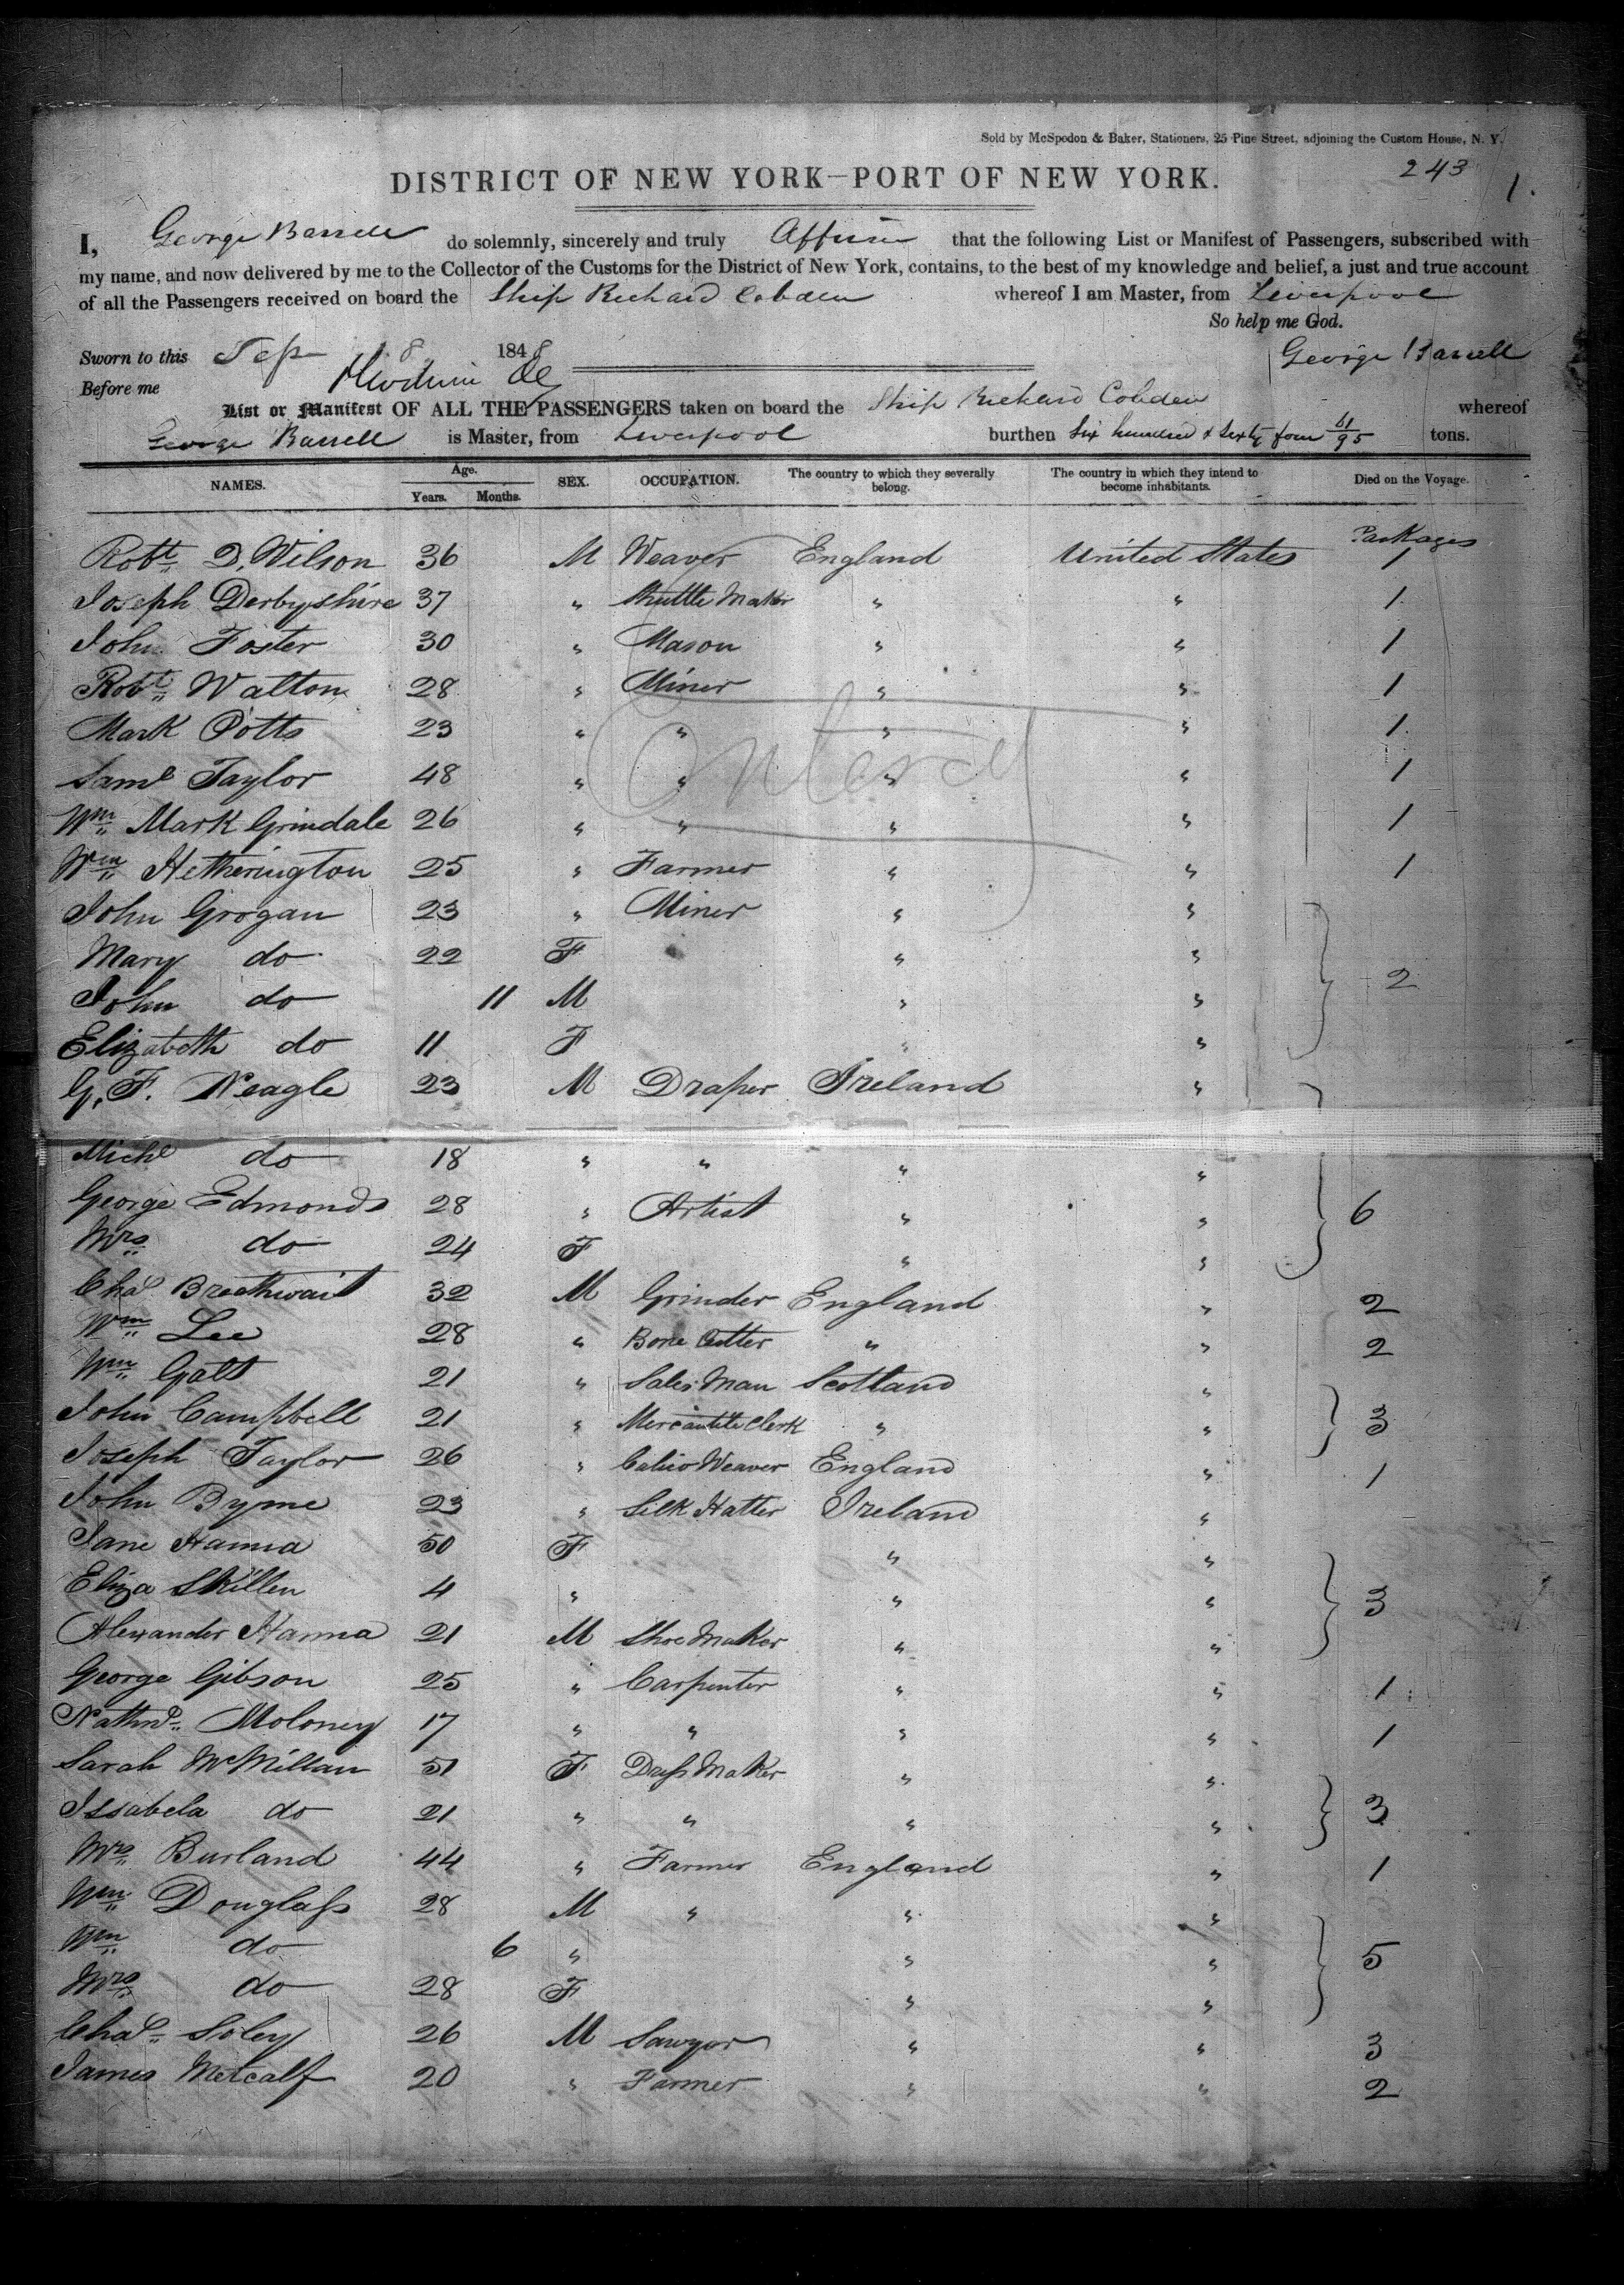 Sold by McSpedon & Baker, Stationers, 25 Pine Street, adjoining the Custom House, N. Y.
243 1.
DISTRICT OF NEW YORK—PORT OF NEW YORK.
I, George Barrell do solemnly, sincerely and truly Affirm that the following List or Manifest of Passengers, subscribed with
my name, and now delivered by me to the Collector of the Customs for the District of New York, contains, to the best of my knowledge and belief, a just and true account
of all the Passengers received on board the Ship Richard Cobden whereof I am Master, from Liverpool
So help me God.
Sworn to this Sep 18 1848 George Barrell
Before me
List or Manifest OF ALL THE PASSENGERS taken on board the Ship Richard Cobden whereof
George Barrell is Master, from Liverpool burthen Six hundred & Sixty four 51/95 tons.
NAMES. Age. Years. Months. SEX. OCCUPATION. The country to which they severally belong. The country in which they intend to become inhabitants. Died on the Voyage.
Packages
Robt. D. Wilson 36 M Weaver England United States 1
Joseph Derbyshire 37 " Shuttle Maker " " 1
John Foster 30 " Mason " " 1
Robt. Walton 28 " Miner " " 1
Mark Potts 23 " " " " 1
Saml Taylor 48 " " " " 1
Wm. Mark Grindale 26 " " " " 1
Wm. Hetherington 25 " Farmer " " 1
John Grogan 23 " Miner " "
Mary do 22 F " "
John do 11 M " " 2
Elizabeth do 11 F " "
G. F. Neagle 23 M Draper Ireland "
Michl do 18 " " " "
George Edmonds 28 " Artist " " 6
Mrs. do 24 F " "
Chas. Breethwait 32 M Grinder England " 2
Wm. Lee 28 " Bone Cutter " " 2
Wm. Galt 21 " Sales Man Scotland "
John Campbell 21 " Mercantile Clerk " " 3
Joseph Taylor 26 " Calico Weaver England " 1
John Byrne 23 " Silk Hatter Ireland "
Jane Hanna 50 F " "
Eliza Skillen 4 " " " 3
Alexander Hanna 21 M Shoe Maker " "
George Gibson 25 " Carpenter " " 1
Nathnl. Moloney 17 " " " " 1
Sarah McMillan 51 F Dress Maker " "
Issabela do 21 " " " " 3
Mrs. Burland 44 " Farmer England " 1
Wm. Douglass 28 M " " "
Wm. do 6 " " " 5
Mrs. do 28 F " "
Chas. Soley 26 M Sawyer " " 3
James Metcalf 20 " Farmer " " 2